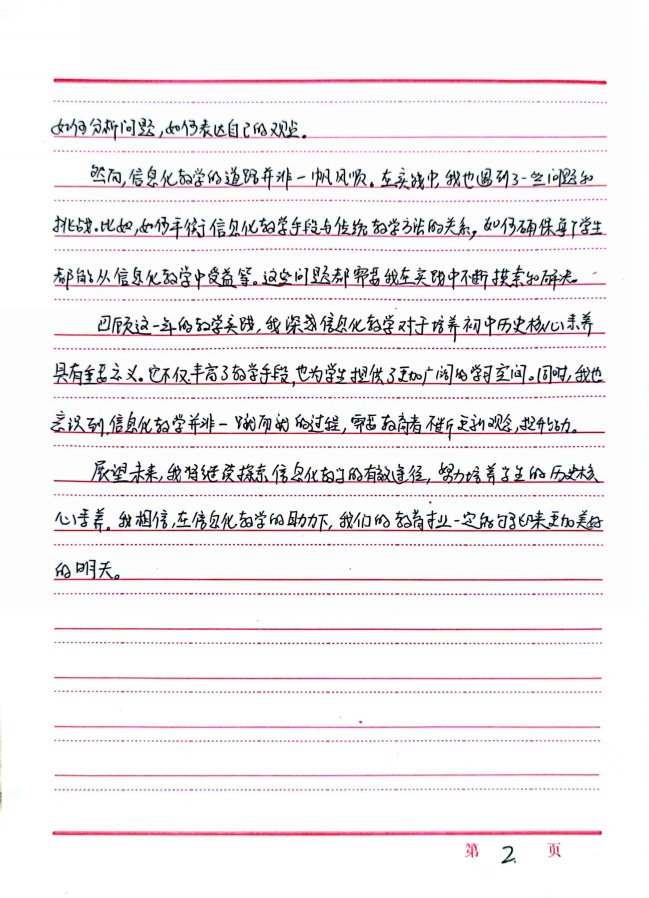 如何分析问题，如何表达自己的观点。
然而，信息化教学的道路并非一帆风顺。在实践中，我也遇到了一些问题和
挑战。比如，如何平衡信息化教学手段与传统教学方法的关系，如何确保每个学生
都能从信息化教学中受益等。这些问题都需要我在实践中不断摸索和解决。
回顾这一年的教学实践，我深感信息化教学对于培养初中历史核心素养
具有重要意义。它不仅丰富了教学手段，也为学生提供了更加广阔的学习空间。同时，我也
意识到，信息化教学并非一蹴而就的过程，需要教育者不断更新观念，提升能力。
展望未来，我将继续探索信息化教学的有效途径，努力培养学生的历史核
心素养。我相信，在信息化教学的助力下，我们的教育事业一定能够迎来更加美好
的明天。
第 2 页